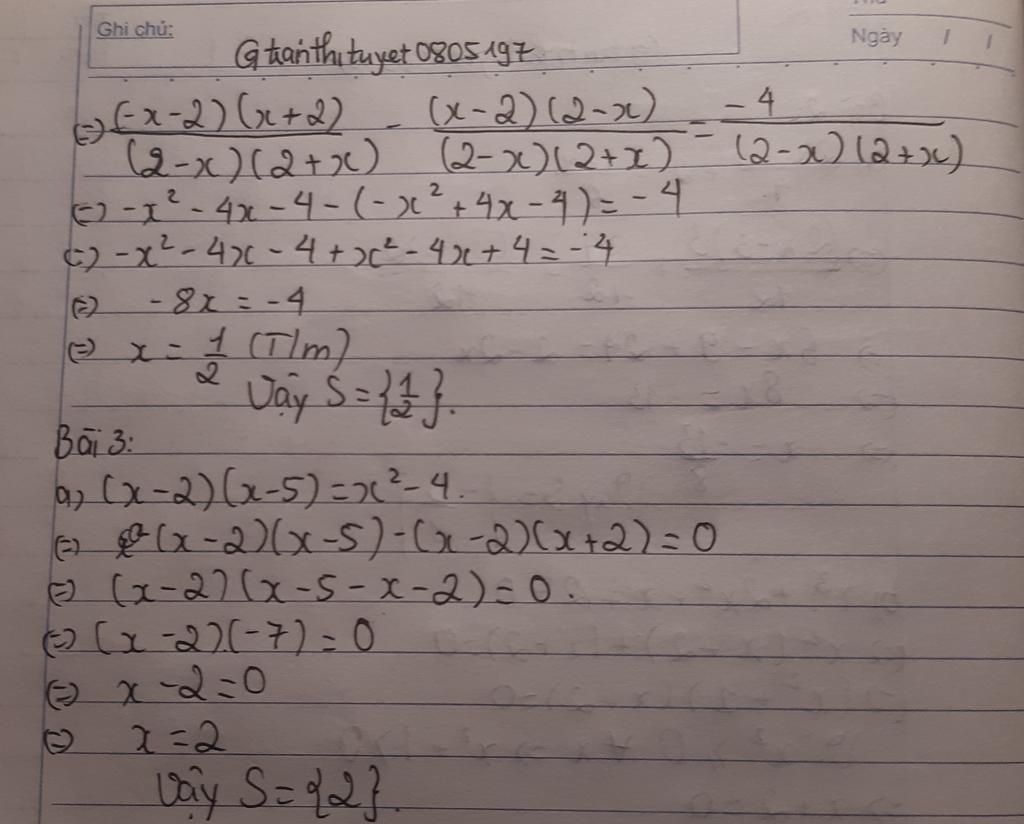 Ghi chú:
Ngày / /
@tranthituyet0805197
⇔ (-x-2)(x+2)/(2-x)(2+x) - (x-2)(2-x)/(2-x)(2+x) = -4/(2-x)(2+x)
⇔ -x² - 4x - 4 - (-x² + 4x - 4) = -4
⇔ -x² - 4x - 4 + x² - 4x + 4 = -4
⇔ -8x = -4
⇔ x = 1/2 (T/m)
Vậy S = {1/2}.
Bài 3:
a, (x-2)(x-5) = x² - 4.
⇔ (x-2)(x-5) - (x-2)(x+2) = 0
⇔ (x-2)(x-5-x-2) = 0.
⇔ (x-2).(-7) = 0
⇔ x-2 = 0
⇔ x = 2
Vậy S = {2}.